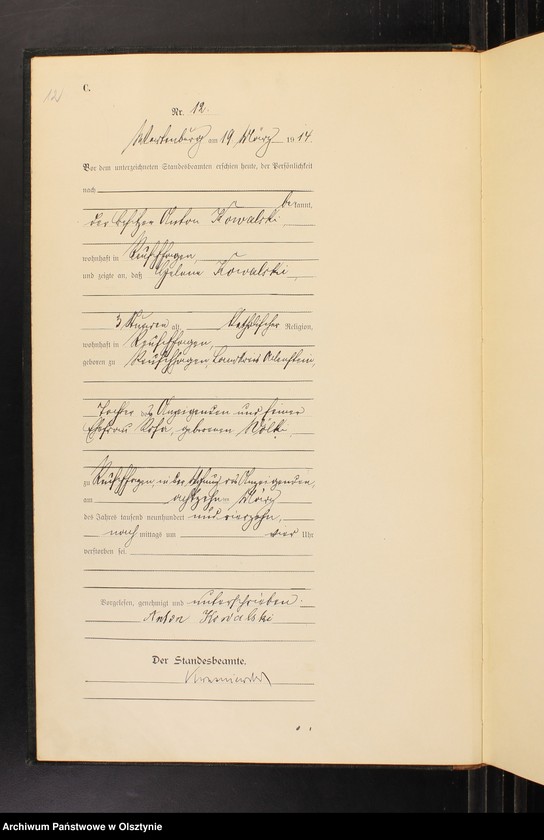 C.
121
Nr. 12.
Wartenburg am 19 März 1914.
Vor dem unterzeichneten Standesbeamten erschien heute, der Persönlichkeit
nach
bekannt,
der Besitzer Anton Kowalski,
wohnhaft in
und zeigte an, daß Helene Kowalski,
3 alt, katholischer Religion,
wohnhaft in
geboren zu Landkreis Allenstein,
Tochter des Anzeigenden und seiner
Ehefrau Rosa, geborenen
zu in der Wohnung des Anzeigenden,
am achtzehnten März
des Jahres tausend neunhundert und vierzehn,
nach mittags um vier Uhr
verstorben sei.
Vorgelesen, genehmigt und unterschrieben.
Anton Kowalski
Der Standesbeamte.
Archiwum Państwowe w Olsztynie